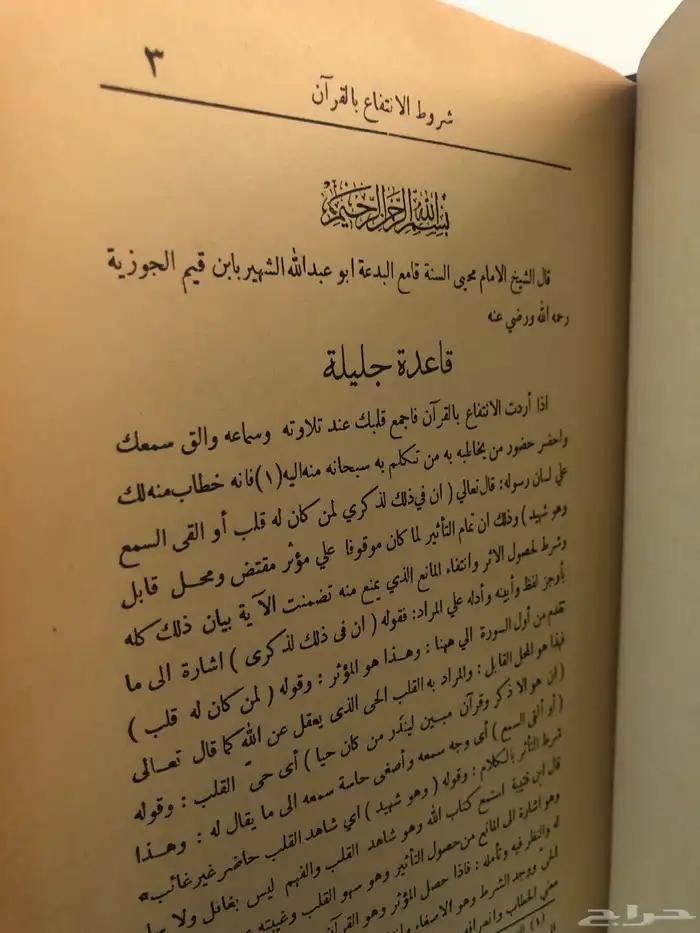 ٣
شروط الانتفاع بالقرآن
بسم الله الرحمن الرحيم
قال الشيخ الامام محيى السنة قامع البدعة ابو عبدالله الشهير بابن قيم الجوزية
رحمه الله ورضي عنه
قاعدة جليلة
اذا أردت الانتفاع بالقرآن فاجمع قلبك عند تلاوته وسماعه والق سمعك
واحضر حضور من يخاطبه به من تكلم به سبحانه منه اليه (١) فانه خطاب منه لك
علي لسان رسوله: قال تعالي ( ان في ذلك لذكري لمن كان له قلب أو القى السمع
وهو شهيد ) وذلك ان تمام التأثير لما كان موقوفا علي مؤثر مقتض ومحل قابل
وشرط لحصول الاثر وانتفاء المانع الذي يمنع منه تضمنت الآية بيان ذلك كله
بأوجز لفظ وأبينه وأدله علي المراد: فقوله ( ان فى ذلك لذكرى ) اشارة الى ما
تقدم من أول السورة الي ههنا : وهذا هو المؤثر : وقوله ( لمن كان له قلب )
فهذا هو المحل القابل : والمراد به القلب الحى الذى يعقل عن الله كما قال تعالى
( ان هو الا ذكر وقرآن مبين لينذر من كان حيا ) أى حىّ القلب : وقوله
( أو ألقى السمع ) أى وجه سمعه وأصغى حاسة سمعه الى ما يقال له : وهذا
شرط التأثر بالكلام : وقوله ( وهو شهيد ) اي شاهد القلب حاضر غير غائب*
قال ابن قتيبة استمع كتاب الله وهو شاهد القلب والفهم ليس بغافل ولا
وهو اشارة الى المانع من حصول التأثير وهو سهو القلب وغيبته
له والنظر فيه وتأمله : فاذا حصل المؤثر وهو القرآن
الحى ووجد الشرط وهو الاصغاء
معنى الخطاب وانصرافه
(١)
حراج